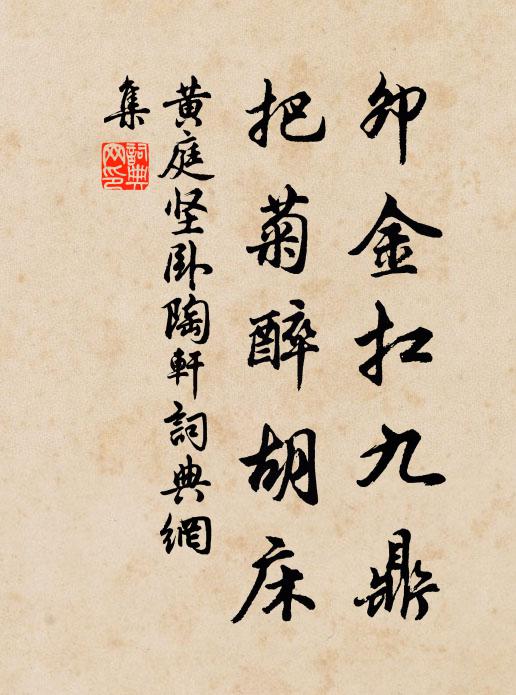 卯金扛九鼎
把菊醉胡床
黄庭坚卧陶軒詞典網
集
詞典
网印